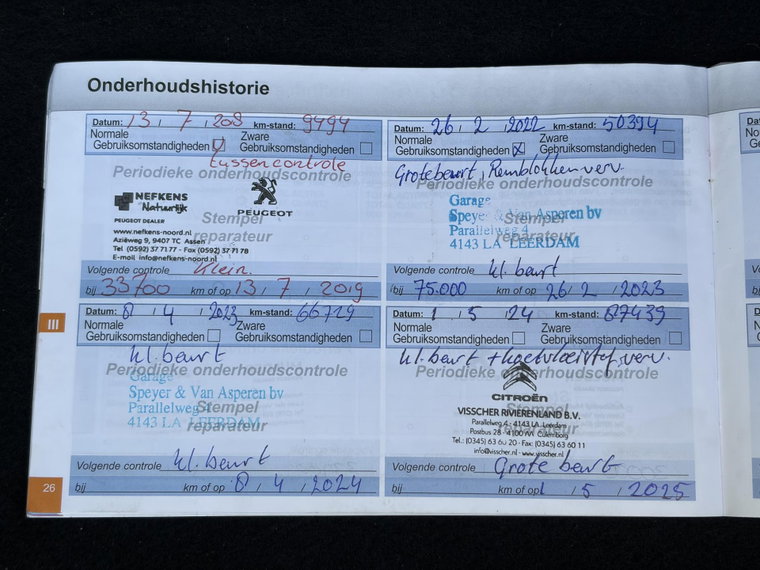 Onderhoudshistorie
Datum: 13 / 7 / 208 km-stand: 9494
Normale Gebruiksomstandigheden
Zware Gebruiksomstandigheden
tussencontrole
Periodieke onderhoudscontrole
NEFKENS
Natuurlijk
PEUGEOT DEALER
PEUGEOT
www.nefkens-noord.nl
Aziëweg 9, 9407 TC Assen
Tel (0592) 37 71 77 - Fax (0592) 37 71 78
E-mail info@nefkens-noord.nl
Stempel
reparateur
Volgende controle Klein.
bij 33700 km of op 13 / 7 / 2019
Datum: 26 / 2 / 2022 km-stand: 50394
Normale Gebruiksomstandigheden
Zware Gebruiksomstandigheden
Grote beurt, Remblokken verv.
Periodieke onderhoudscontrole
Garage
Speyer & Van Asperen bv
Parallelweg 4
4143 LA LEERDAM
Stempel
reparateur
Volgende controle kl. beurt
bij 75.000 km of op 26 / 2 / 2023
III
Datum: 8 / 4 / 2023 km-stand: 66729
Normale Gebruiksomstandigheden
Zware Gebruiksomstandigheden
kl. beurt
Periodieke onderhoudscontrole
Garage
Speyer & Van Asperen bv
Parallelweg 4
4143 LA LEERDAM
Stempel
reparateur
Volgende controle kl. beurt
bij km of op 8 / 4 / 2024
Datum: 1 / 5 / 24 km-stand: 87439
Normale Gebruiksomstandigheden
Zware Gebruiksomstandigheden
kl. beurt + koelvloeistof verv.
Periodieke onderhoudscontrole
CITROËN
VISSCHER RIVIERENLAND B.V.
Parallelweg 4 - 4143 LA Leerdam
Postbus 28 - 4100 AA Culemborg
Tel.: (0345) 63 60 20 - Fax: (0345) 63 60 11
info@visscher.nl - www.visscher.nl
Stempel
reparateur
Volgende controle Grote beurt
bij km of op 1 / 5 / 2025
26